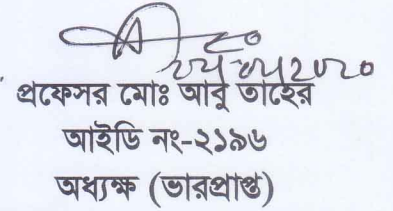 প্রফেসর মোঃ আবু তাহের
আইডি নং-২১৯৬
অধ্যক্ষ (ভারপ্রাপ্ত)